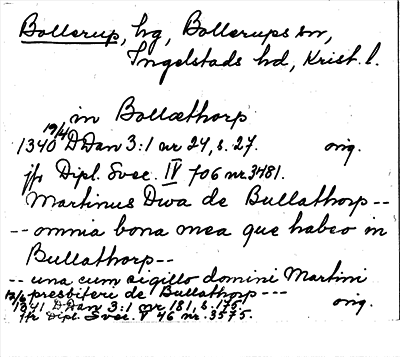 Bollerup, hg, Bollerups sn,
Ingelstads hd, Krist. l.
in Bollæthorp
19/4
1340 DDan 3:1 nr 24, s. 27. orig.
jfr Dipl. Svec. IV 706 nr. 3481.
Martinus Dwa de Bullathorp --
-- omnia bona mea que habeo in
Bullathorp --
-- una cum sigillo domini Martini
presbiteri de Bullathorp ---
1341 DDan 3:1 nr 181, s. 175. orig.
jfr Dipl. Svec. V 46 nr. 3575.